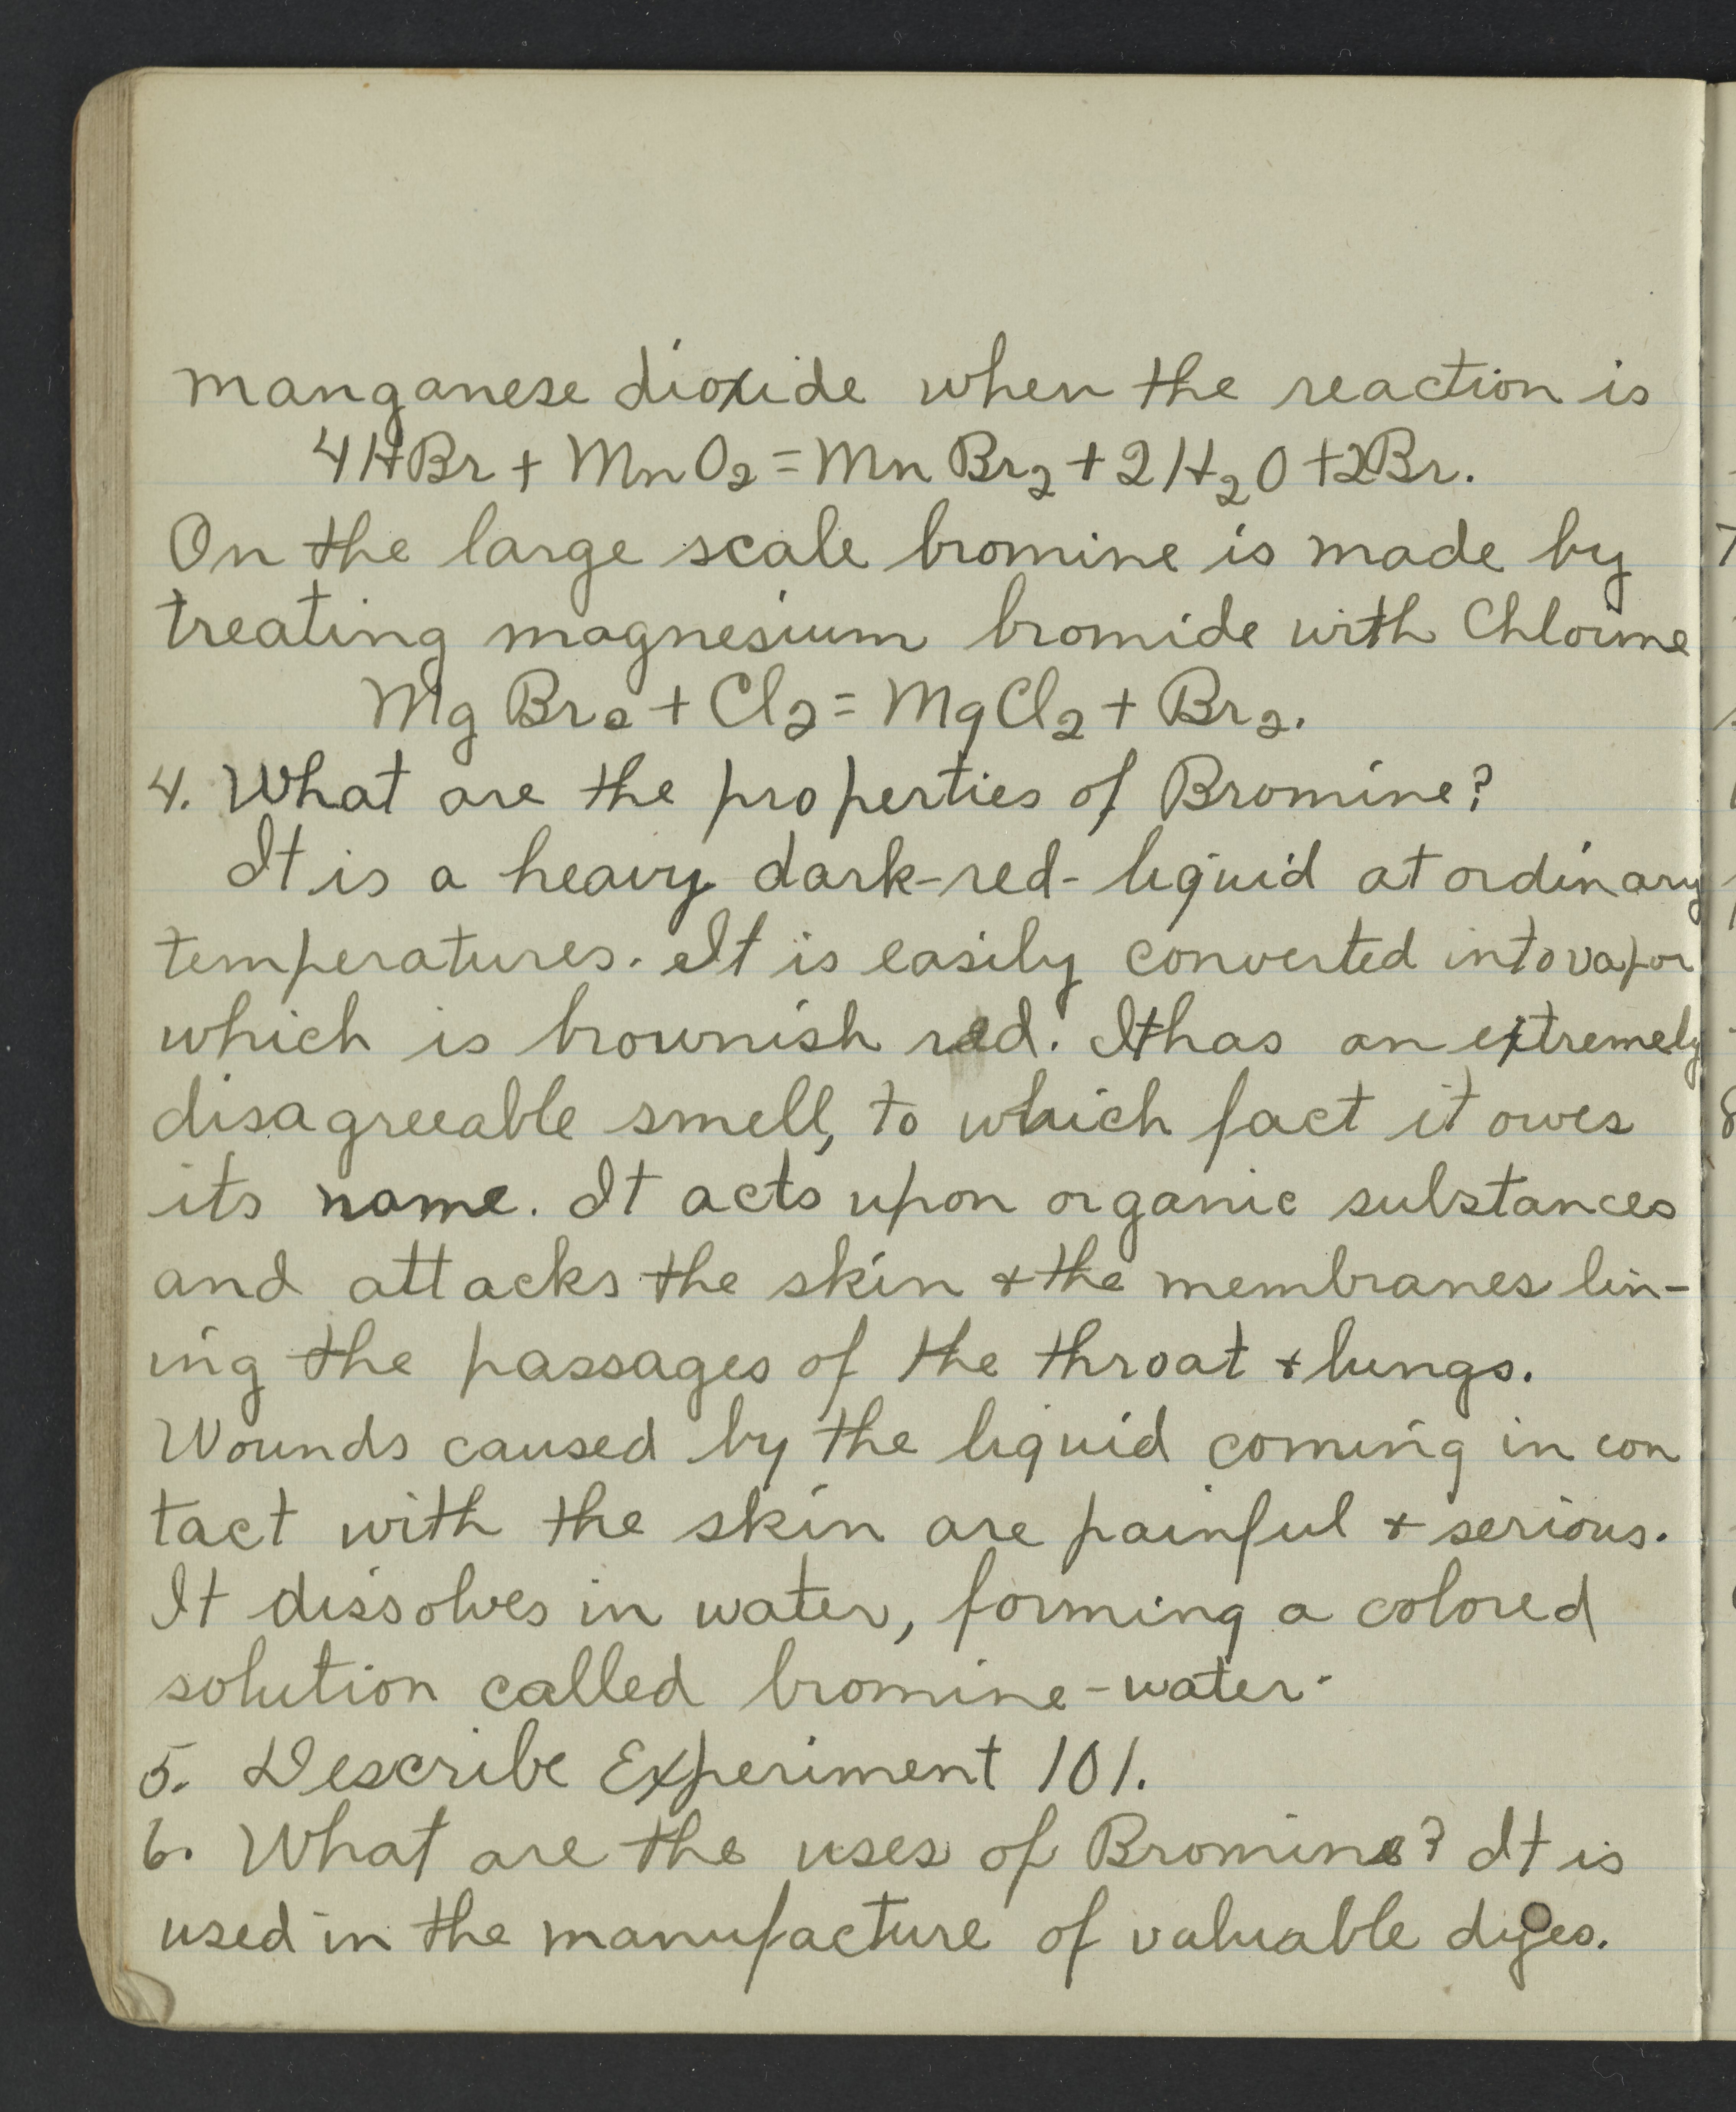 manganese dioxide when the reaction is
4HBr + MnO₂ = MnBr₂ + 2H₂O + 2Br.
On the large scale bromine is made by
treating magnesium bromide with Chlorine
MgBr₂ + Cl₂ = MgCl₂ + Br₂.
4. What are the properties of Bromine?
It is a heavy dark-red-liquid at ordinary
temperatures. It is easily converted into vapor
which is brownish red. It has an extremely
disagreeable smell, to which fact it owes
its name. It acts upon organic substances
and attacks the skin & the membranes lin-
ing the passages of the throat & lungs.
Wounds caused by the liquid coming in con
tact with the skin are painful & serious.
It dissolves in water, forming a colored
solution called bromine-water.
5. Describe Experiment 101.
6. What are the uses of Bromine? It is
used in the manufacture of valuable dyes.